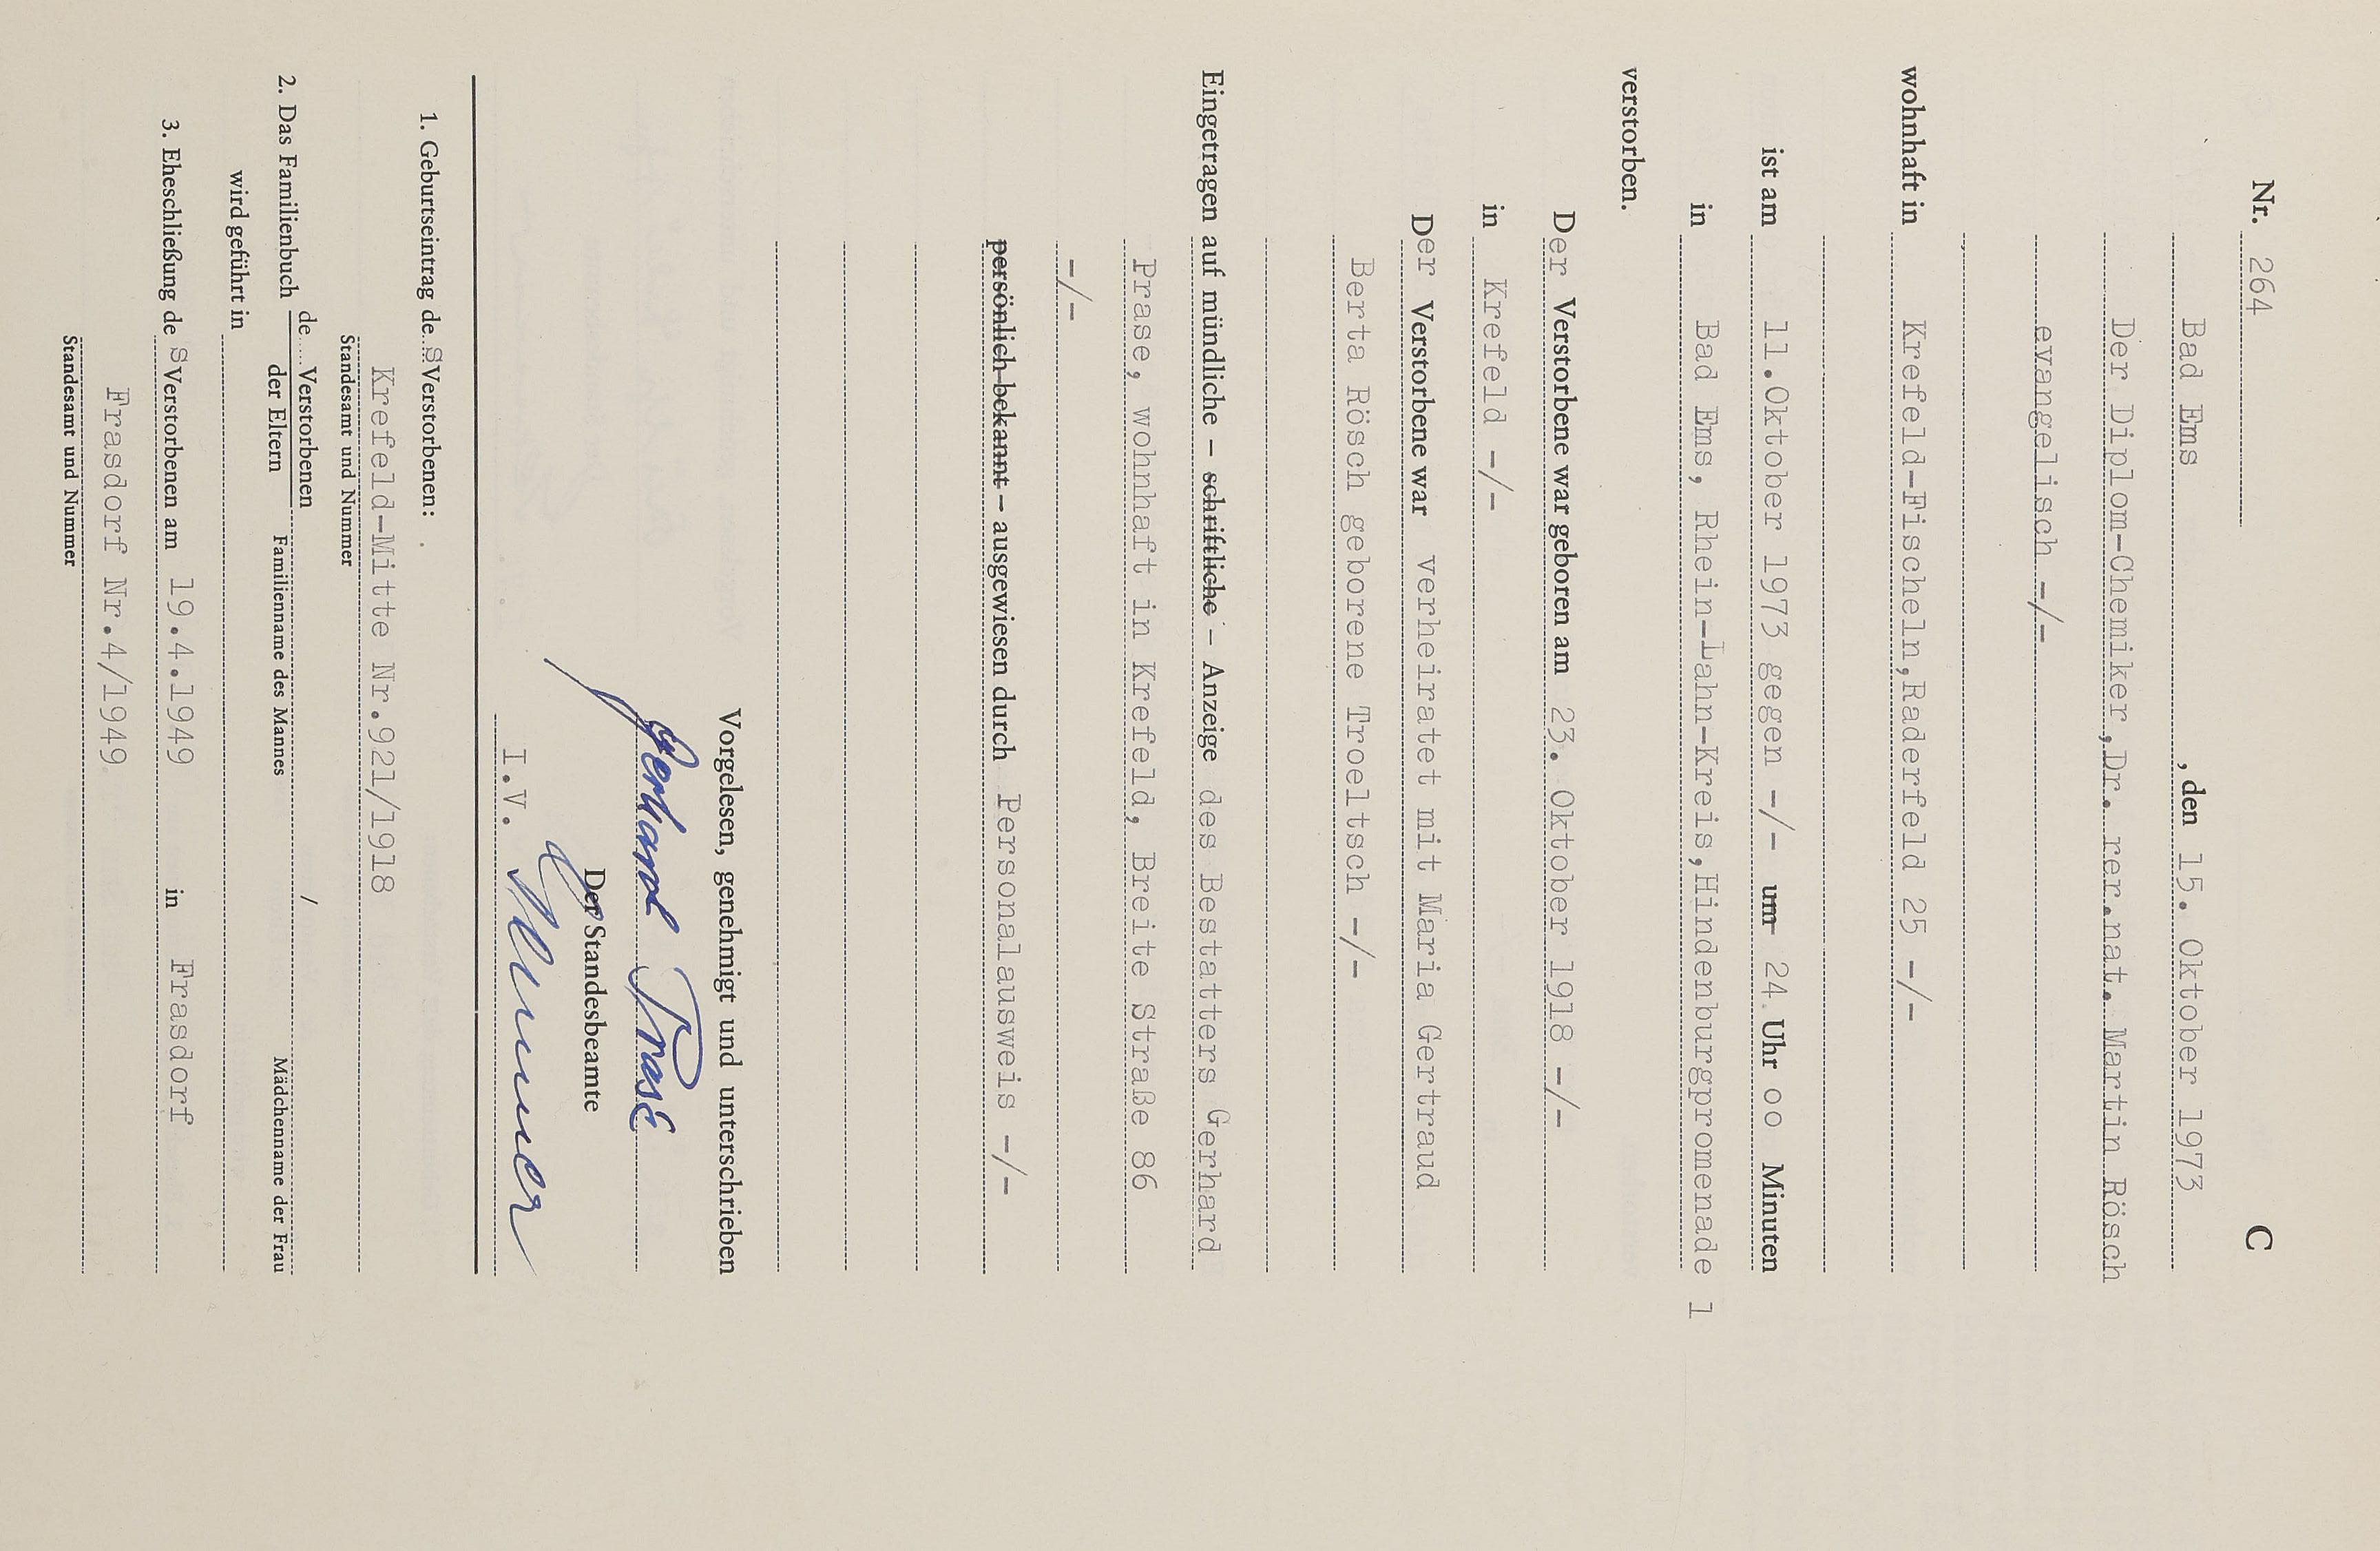 Nr. 264 C
Bad Ems , den 15. Oktober 1973
Der Diplom-Chemiker,Dr. rer.nat. Martin Rösch
evangelisch -/-
wohnhaft in Krefeld-Fischeln,Raderfeld 25 -/-
ist am 11.Oktober 1973 gegen -/- um 24 Uhr oo Minuten
in Bad Ems, Rhein-Lahn-Kreis,Hindenburgpromenade 1
verstorben.
Der Verstorbene war geboren am 23. Oktober 1918 -/-
in Krefeld -/-
Der Verstorbene war verheiratet mit Maria Gertraud
Berta Rösch geborene Troeltsch -/-
Eingetragen auf mündliche – schriftliche – Anzeige des Bestatters Gerhard
Prase, wohnhaft in Krefeld, Breite Straße 86
-/-
persönlich bekannt – ausgewiesen durch Personalausweis -/-
Vorgelesen, genehmigt und unterschrieben
Gerhard Prase
Der Standesbeamte
I.V.
1. Geburtseintrag des Verstorbenen:
Krefeld-Mitte Nr.921/1918
Standesamt und Nummer
2. Das Familienbuch de.... Verstorbenen /
der Eltern Familienname des Mannes Mädchenname der Frau
wird geführt in
3. Eheschließung des Verstorbenen am 19.4.1949 in Frasdorf
Frasdorf Nr.4/1949
Standesamt und Nummer